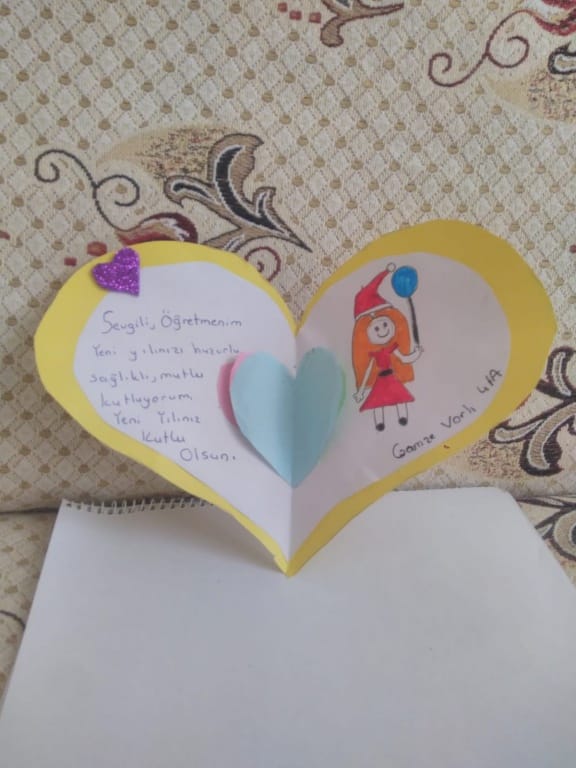 Sevgili, Öğretmenim
Yeni yılınızı huzurlu
sağlıklı, mutlu
kutluyorum
Yeni Yılınız
Kutlu
Olsun.
Gamze Varlı 4/A